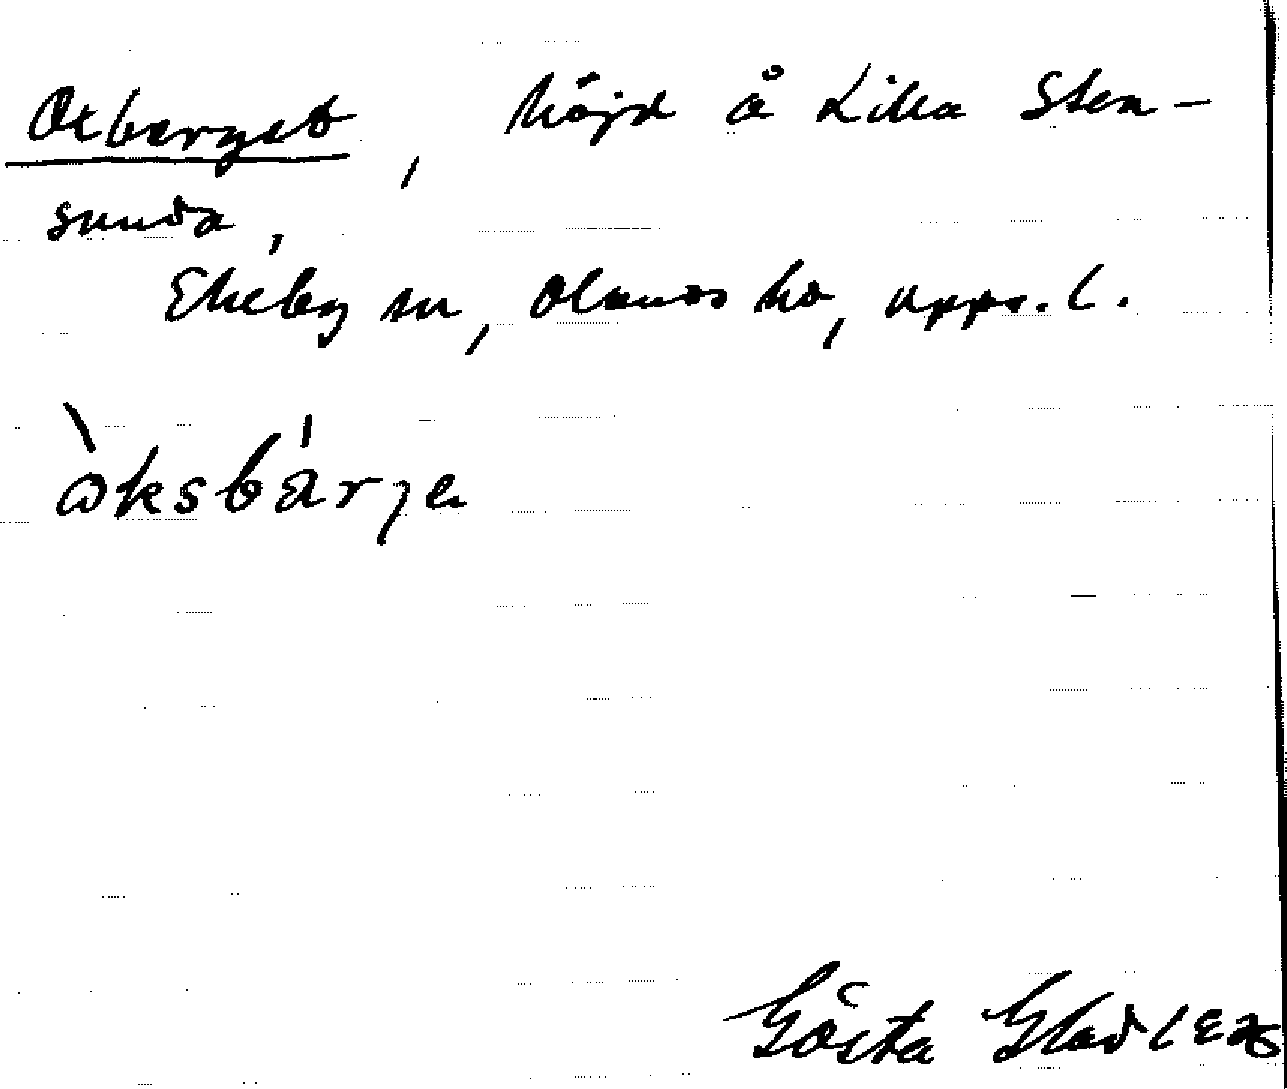 Oxberget, höjd å Lilla Sten-
sunda,
Ekeby sn, Olands hd, Upps. l.
òksbárjɐ
Gösta